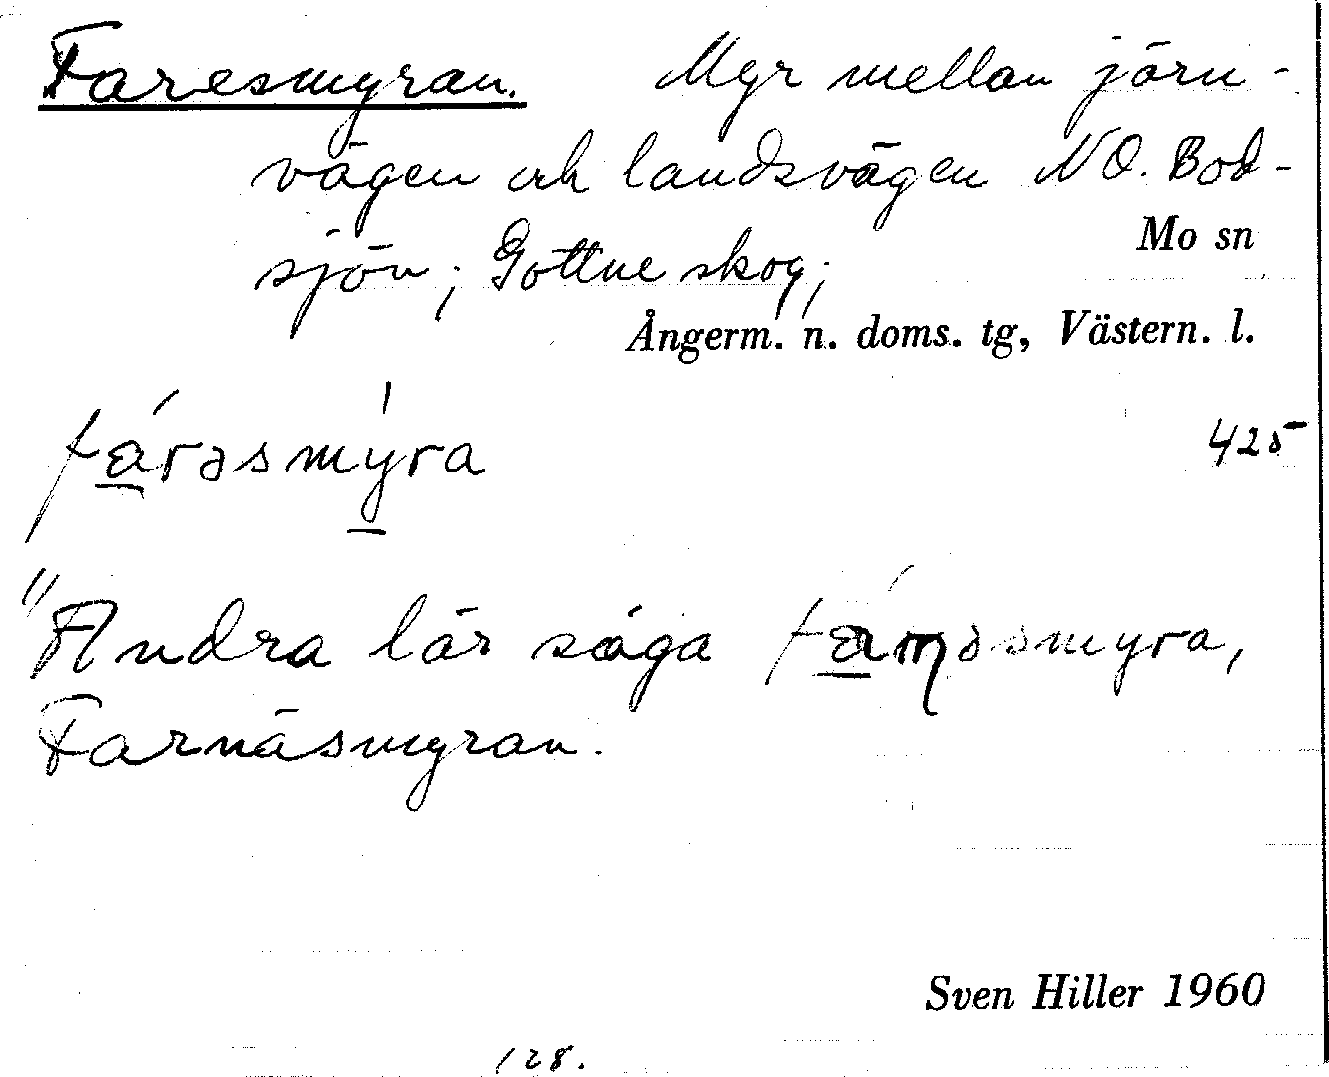 Faresmyran. Myr mellan järn-
vägen och landsvägen NO. Bod-
sjön; Gottne skog;
Mo sn
Ångerm. n. doms. tg, Västern. l.
fárəsmýra
425
"Andra lär säga fáṇəsmyra,
Farnäsmyran.
Sven Hiller 1960
128.